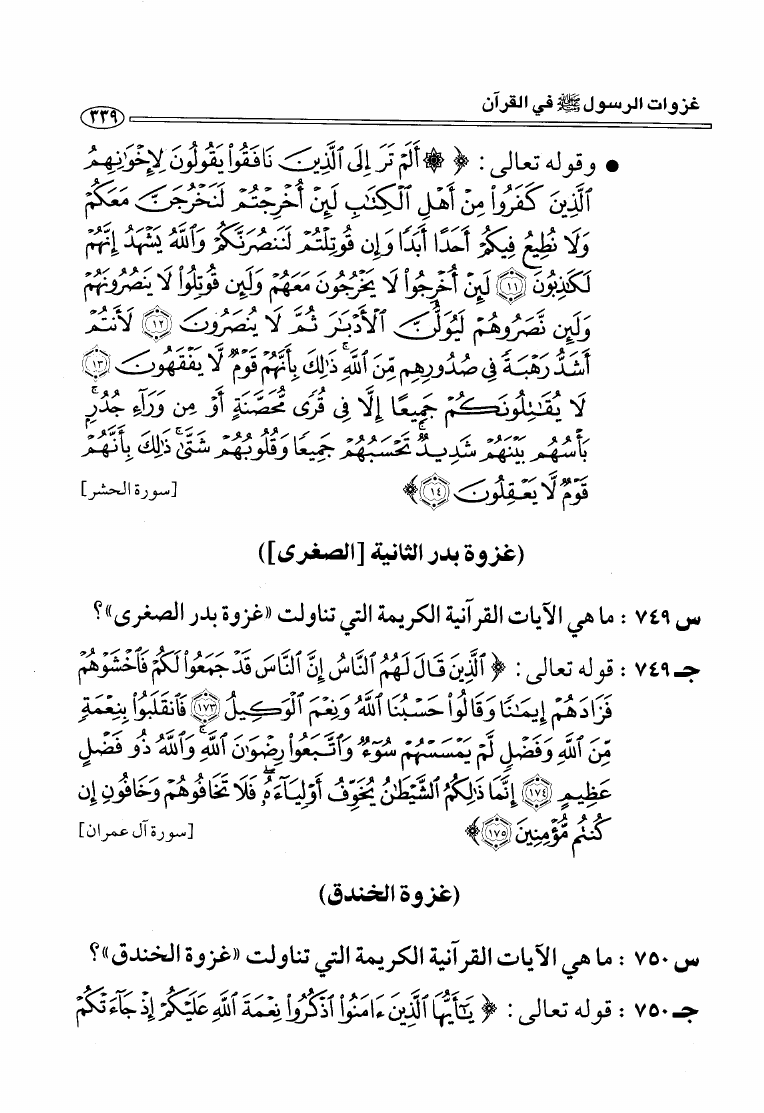 غزوات الرسول ﷺ في القرآن
٣٣٩
● وقوله تعالى : ﴿ ۞ أَلَمْ تَرَ إِلَى ٱلَّذِينَ نَافَقُوا۟ يَقُولُونَ لِإِخْوَٰنِهِمُ
ٱلَّذِينَ كَفَرُوا۟ مِنْ أَهْلِ ٱلْكِتَٰبِ لَئِنْ أُخْرِجْتُمْ لَنَخْرُجَنَّ مَعَكُمْ
وَلَا نُطِيعُ فِيكُمْ أَحَدًا أَبَدًا وَإِن قُوتِلْتُمْ لَنَنصُرَنَّكُمْ وَٱللَّهُ يَشْهَدُ إِنَّهُمْ
لَكَٰذِبُونَ ﴿١١﴾ لَئِنْ أُخْرِجُوا۟ لَا يَخْرُجُونَ مَعَهُمْ وَلَئِن قُوتِلُوا۟ لَا يَنصُرُونَهُمْ
وَلَئِن نَّصَرُوهُمْ لَيُوَلُّنَّ ٱلْأَدْبَٰرَ ثُمَّ لَا يُنصَرُونَ ﴿١٢﴾ لَأَنتُمْ
أَشَدُّ رَهْبَةً فِى صُدُورِهِم مِّنَ ٱللَّهِ ۚ ذَٰلِكَ بِأَنَّهُمْ قَوْمٌ لَّا يَفْقَهُونَ ﴿١٣﴾
لَا يُقَٰتِلُونَكُمْ جَمِيعًا إِلَّا فِى قُرًى مُّحَصَّنَةٍ أَوْ مِن وَرَآءِ جُدُرٍۭ ۚ
بَأْسُهُم بَيْنَهُمْ شَدِيدٌ ۚ تَحْسَبُهُمْ جَمِيعًا وَقُلُوبُهُمْ شَتَّىٰ ۚ ذَٰلِكَ بِأَنَّهُمْ
قَوْمٌ لَّا يَعْقِلُونَ ﴿١٤﴾ ﴾ [سورة الحشر]
(غزوة بدر الثانية [الصغرى])
س ٧٤٩ : ما هي الآيات القرآنية الكريمة التي تناولت «غزوة بدر الصغرى»؟
جـ ٧٤٩ : قوله تعالى : ﴿ ٱلَّذِينَ قَالَ لَهُمُ ٱلنَّاسُ إِنَّ ٱلنَّاسَ قَدْ جَمَعُوا۟ لَكُمْ فَٱخْشَوْهُمْ
فَزَادَهُمْ إِيمَٰنًا وَقَالُوا۟ حَسْبُنَا ٱللَّهُ وَنِعْمَ ٱلْوَكِيلُ ﴿١٧٣﴾ فَٱنقَلَبُوا۟ بِنِعْمَةٍ
مِّنَ ٱللَّهِ وَفَضْلٍ لَّمْ يَمْسَسْهُمْ سُوٓءٌ وَٱتَّبَعُوا۟ رِضْوَٰنَ ٱللَّهِ ۗ وَٱللَّهُ ذُو فَضْلٍ
عَظِيمٍ ﴿١٧٤﴾ إِنَّمَا ذَٰلِكُمُ ٱلشَّيْطَٰنُ يُخَوِّفُ أَوْلِيَآءَهُۥ فَلَا تَخَافُوهُمْ وَخَافُونِ إِن
كُنتُم مُّؤْمِنِينَ ﴿١٧٥﴾ ﴾ [سورة آل عمران]
(غزوة الخندق)
س ٧٥٠ : ما هي الآيات القرآنية الكريمة التي تناولت «غزوة الخندق»؟
جـ ٧٥٠ : قوله تعالى : ﴿ يَٰٓأَيُّهَا ٱلَّذِينَ ءَامَنُوا۟ ٱذْكُرُوا۟ نِعْمَةَ ٱللَّهِ عَلَيْكُمْ إِذْ جَآءَتْكُمْ